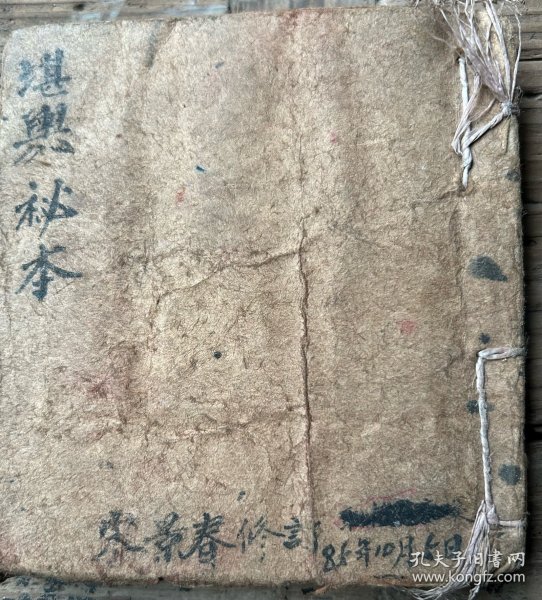 堪輿秘本
宋景春修訂
85年10月6日
孔夫子旧书网
www.kongfz.com